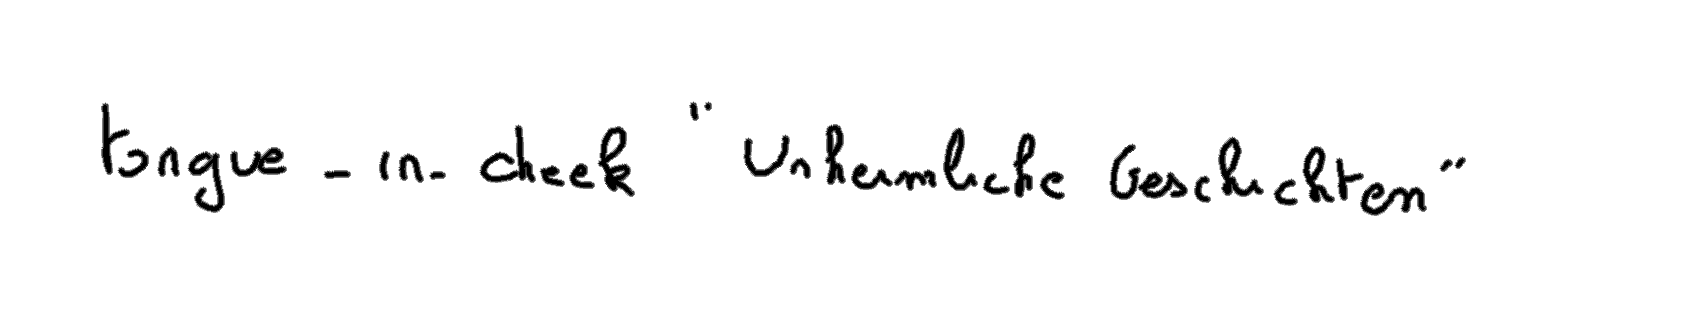 tongue-in-cheek "Unheimliche Geschichten"